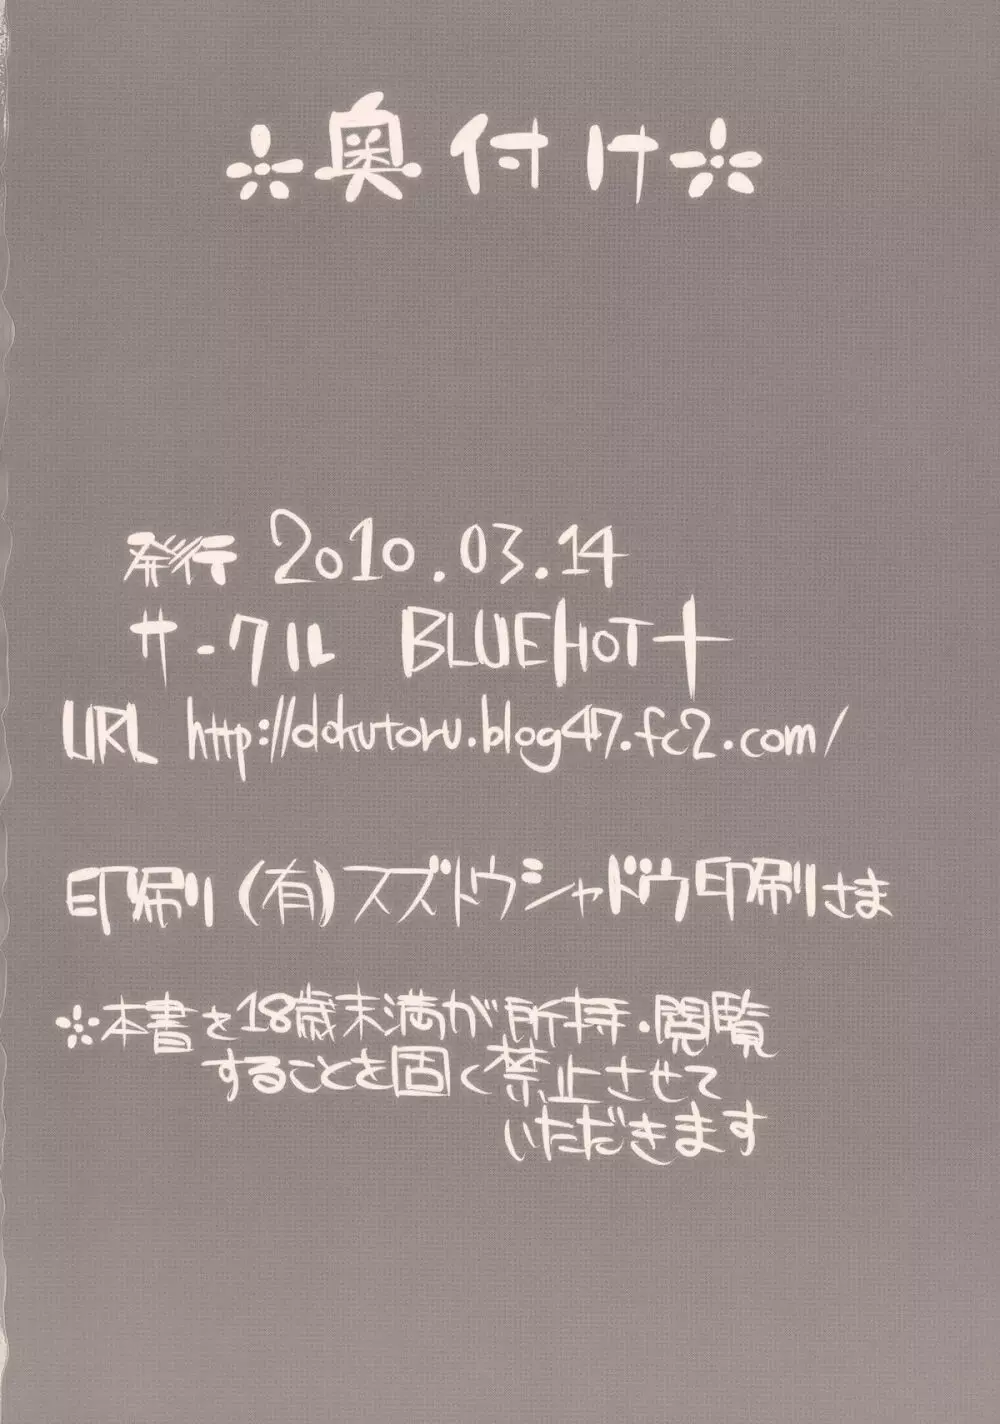 ※奥付け※
発行 2010.03.14
サークル BLUEHOT+
URL http://dokutoru.blog47.fc2.com/
印刷 (有)スズトウシャドウ印刷さま
※本書を18歳末満が所持・閲覧
することを固く禁止させて
いただきます